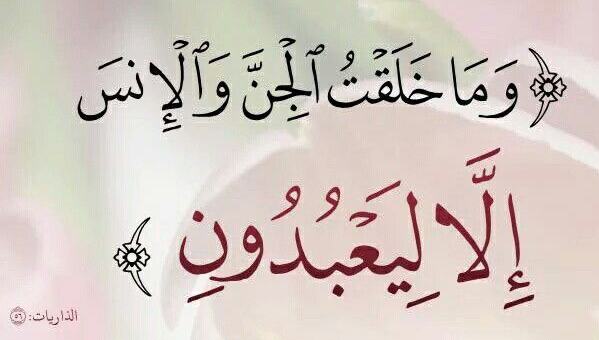 ﴿ وَمَا خَلَقْتُ ٱلْجِنَّ وَٱلْإِنسَ
إِلَّا لِيَعْبُدُونِ ﴾
الذاريات: ٥٦